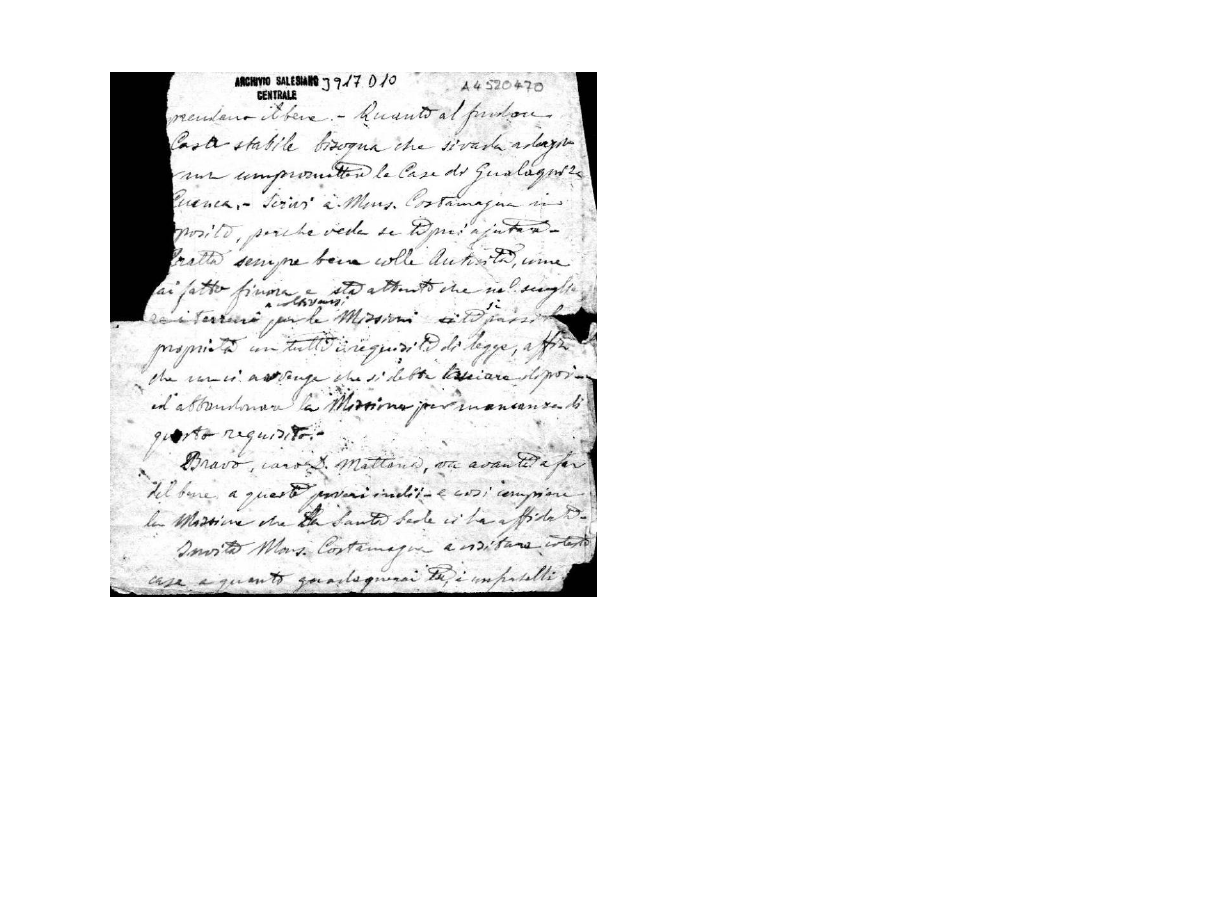 ARCHIVIO SALESIANO J917 D10
CENTRALE
A4520470
prendano il bene. - Quanto al fondare
Casa stabile bisogna che si vada adagio
non compromettere le Case di Gualaquiza
Cuenca. - Scrivi a Mons. Costamagna in
posito, perche veda se ti può ajutare -
tratta sempre bene colle Autorità, come
ai fatto finora e sta attento che nel sceglie
re i terreni per le Missioni si passi la
proprietà con tutti i requisiti di legge, affin
che non ci avvenga che si debba lasciare dipoi
ed abbandonare la Missione per mancanza di
questo requisito. -
Bravo, caro D. Mattana, va avanti a far
del bene a questi poveri indii - e così compiere
la Missione che la Santa Sede ci ha affidato -
Invita Mons. Costamagna a visitare cotesta
casa e quanto guadagnerai tu, i confratelli